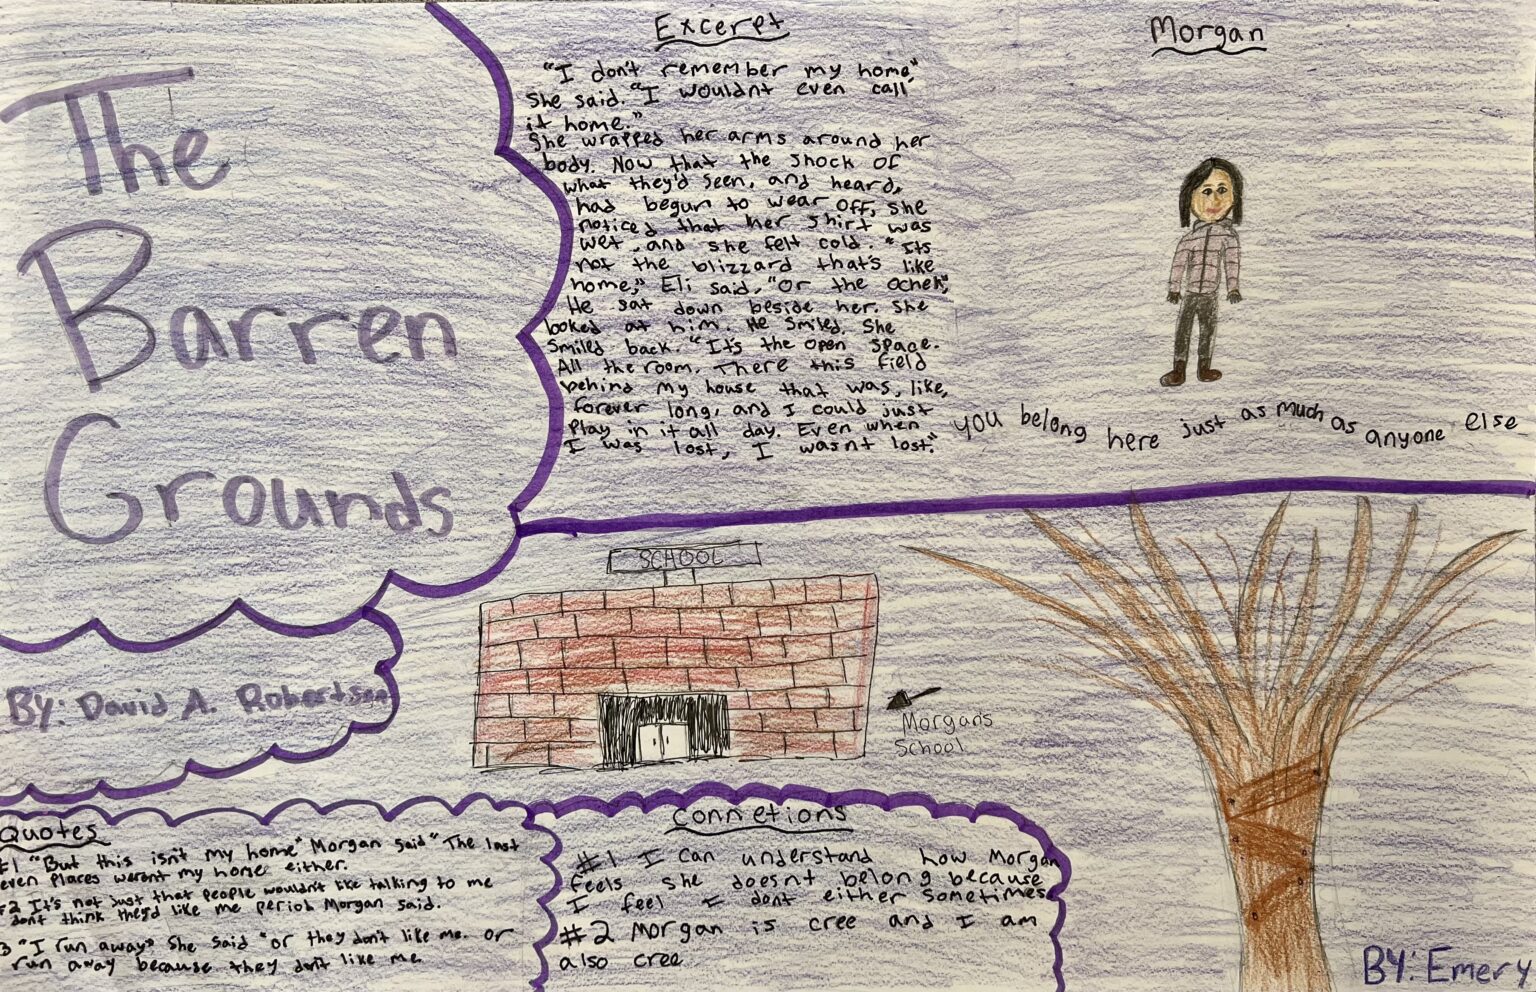 The
Barren
Grounds
BY: David A. Robertson
Excerpt
"I don't remember my home,"
She said. "I wouldnt even call
it home."
She wrapped her arms around her
body. Now that the shock of
what they'd seen, and heard,
had begun to wear off, she
noticed that her shirt was
wet, and she felt cold. "Its
not the blizzard that's like
home," Eli said, "Or the ochek,"
He sat down beside her. She
looked at him. He smiled. She
smiled back. "It's the open space.
All the room. There this field
behind my house that was, like,
forever long, and I could just
Play in it all day. Even when
I was lost, I wasnt lost."
Morgan
you belong here just as much as anyone else
SCHOOL
Morgan's
School
Quotes
#1 "But this isn't my home" Morgan said "The last
even places werent my home either.
#2 It's not just that people wouldn't like talking to me
dont think they'd like me period Morgan said.
3 "I run away" She said "or they don't like me. or
run away because they dont like me
Connetions
#1 I can understand how Morgan
feels she doesnt belong because
I feel I dont either sometimes
#2 Morgan is cree and I am
also cree
BY: Emery